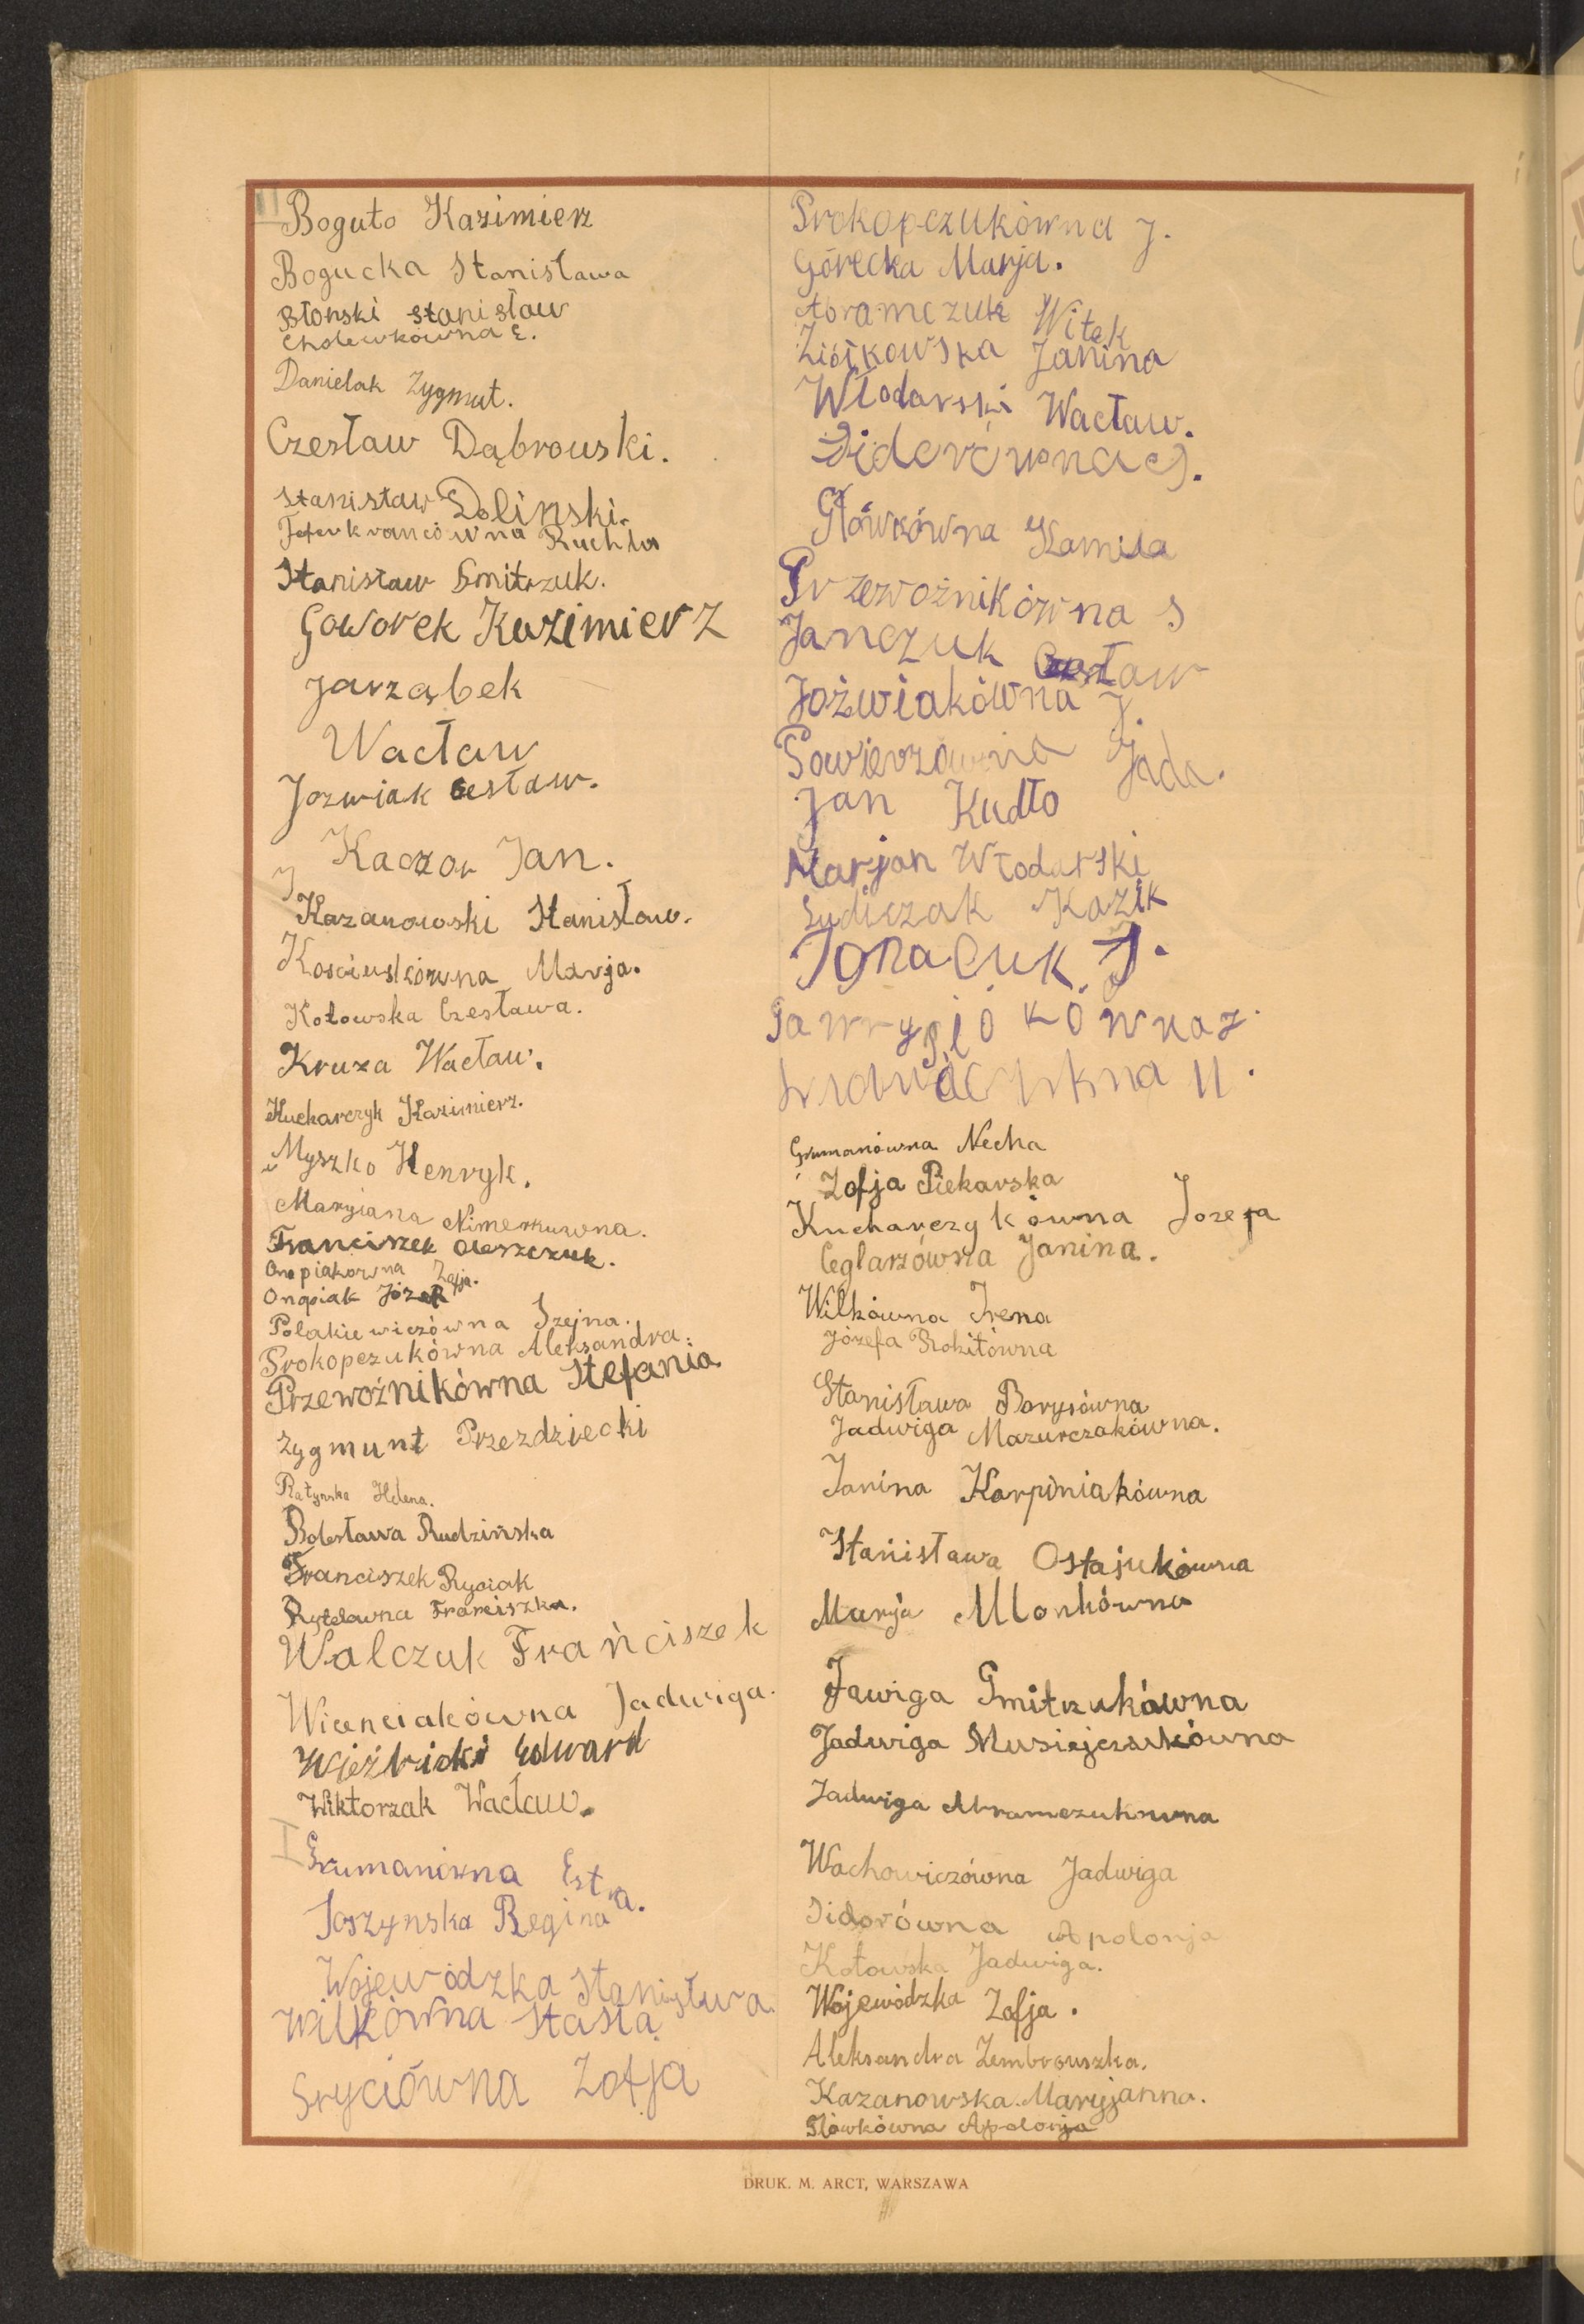 II
Boguto Kazimierz
Bogucka Stanisława
Błoński Stanisław
Cholewkówna E.
Danielak Zygmut.
Czesław Dąbrowski.
Stanisław Doliński.
Ruchla
Stanisław Gmitrzuk.
Goworek Kazimierz
Jarząbek
Wacław
Jozwiak Cesław.
Kaczor Jan.
Kazanowski Stanisław.
Kościuskówna Marja.
Kotowska Czesława.
Kruza Wacław.
Kucharczyk Kazimierz.
Myszko Henryk.
Maryiana Nimerkuwna.
Franciszek Oleszczuk.
Onopiakówna Zofja.
Onopiak Józef
Polakiewiczówna Szejna.
Prokopczukówna Aleksandra.
Przewoźnikówna Stefania
Zygmunt Przezdziecki
Ratyńska Helena.
Bolesława Rudzińska
Franciszek Ryciak
Rytelówna Franciszka.
Walczuk Frańciszek
Wicenciakówna Jadwiga.
Wieźbicki Edward
Wiktorzak Wacław.
I
Grumanówna Estra.
Joszynska Regina
Wojewódzka Stanisława.
Wilkówna Stasia
Sryciówna Zofja
Prokopczukówna J.
Górecka Marja.
Abramczuk Witek
Ziółkowska Janina
Włodarski Wacław.
Sidorówna J.
Główkówna Kamila
Przewoźnikówna S
Janczuk Czesław
Joźwiakówna J.
Sowierzówna Jada.
Jan Kudło
Marjan Włodarski
Kazik
Ignacuk J.
Grumanówna Necha
Zofja Piekarska
Kucharczykówna Jozefa
Ceglarzówna Janina.
Wilkówna Irena
Józefa Rokitówna
Stanisława Borysówna
Jadwiga Mazurczakówna.
Janina Karpiniakówna
Stańisława Ostajukówna
Marja Mlonkówna
Jawiga Gmitrzukówna
Jadwiga Musiejczukówna
Jadwiga Abramczukówna
Wachowiczówna Jadwiga
Sidorówna Apolonja
Kotowska Jadwiga.
Wojewódzka Zofja.
Aleksandra Zembrowszka.
Kazanowska Maryjanna.
Główkówna Apolonja
DRUK. M. ARCT, WARSZAWA